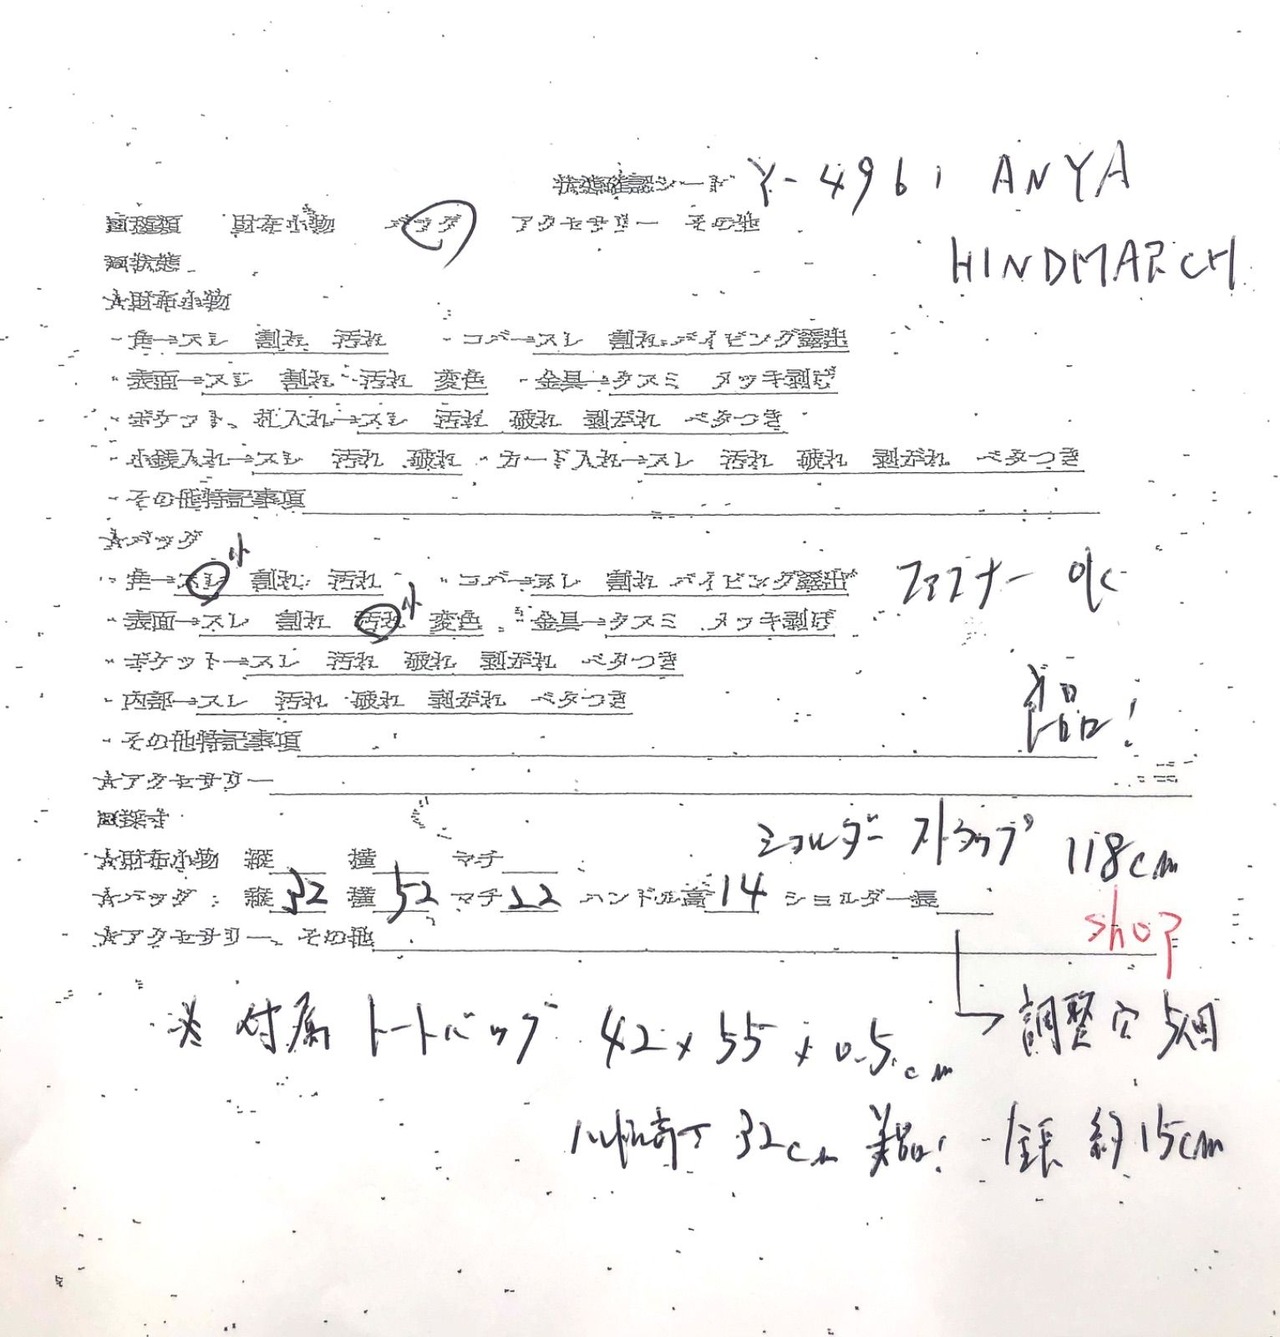 状態確認シート Y-4961 ANYA
HINDMARCH
■種類 財布小物 バッグ アクセサリー その他
■状態
★財布小物
・角→スレ 割れ 汚れ ・コバ→スレ 割れ パイピング露出
・表面→スレ 割れ 汚れ 変色 ・金具→クスミ メッキ剥げ
・ポケット、札入れ→スレ 汚れ 破れ 剥がれ ベタつき
・小銭入れ→スレ 汚れ 破れ ・カード入れ→スレ 汚れ 破れ 剥がれ ベタつき
・その他特記事項
★バッグ
小
・角→スレ 割れ 汚れ ・コバ→スレ 割れ パイピング露出 ファスナー OK
・表面→スレ 割れ 汚れ 小 変色 ・金具→クスミ メッキ剥げ
・ポケット→スレ 汚れ 破れ 剥がれ ベタつき
・内部→スレ 汚れ 破れ 剥がれ ベタつき
良品!
・その他特記事項
★アクセサリー
■採寸
ショルダーストラップ 118cm
★財布小物 縦 横 マチ
★バッグ: 縦32 横52 マチ22 ハンドル高14 ショルダー長
shop
★アクセサリー、その他
調整穴 5個
※付属トートバッグ 42×55×0.5cm
32cm 美品! 全長 約15cm